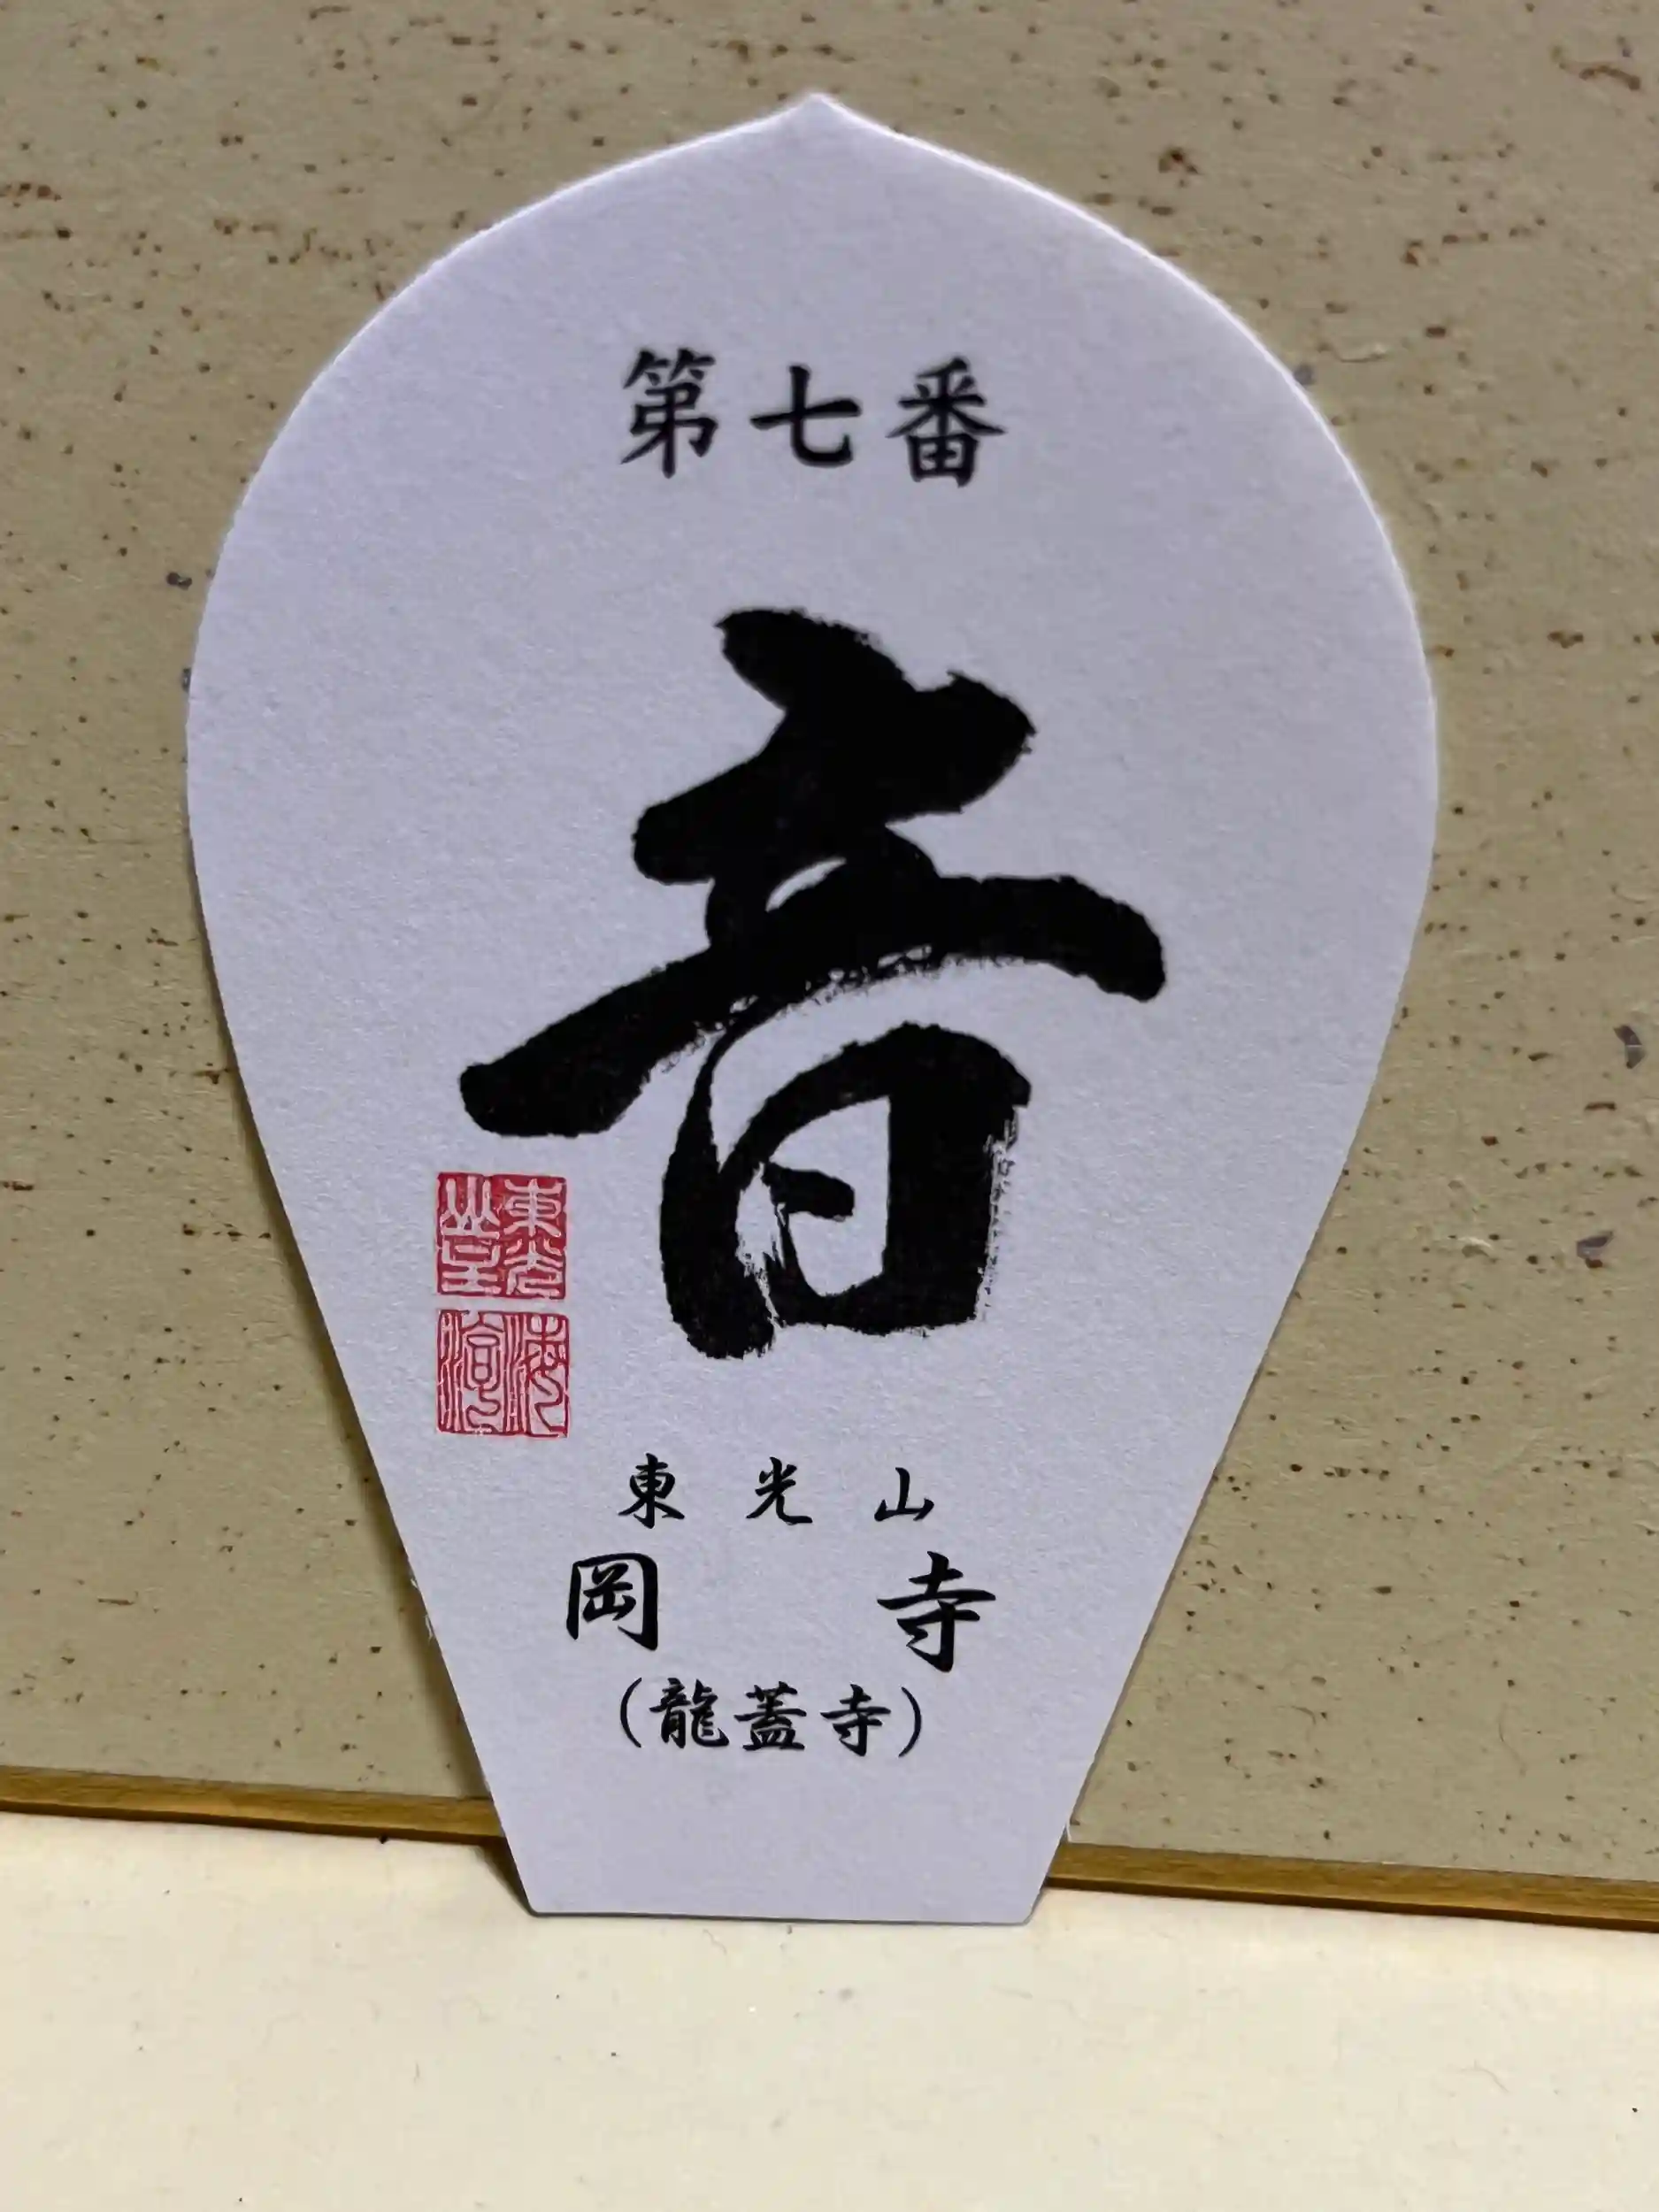 第七番
音
東光山
岡寺
（龍蓋寺）